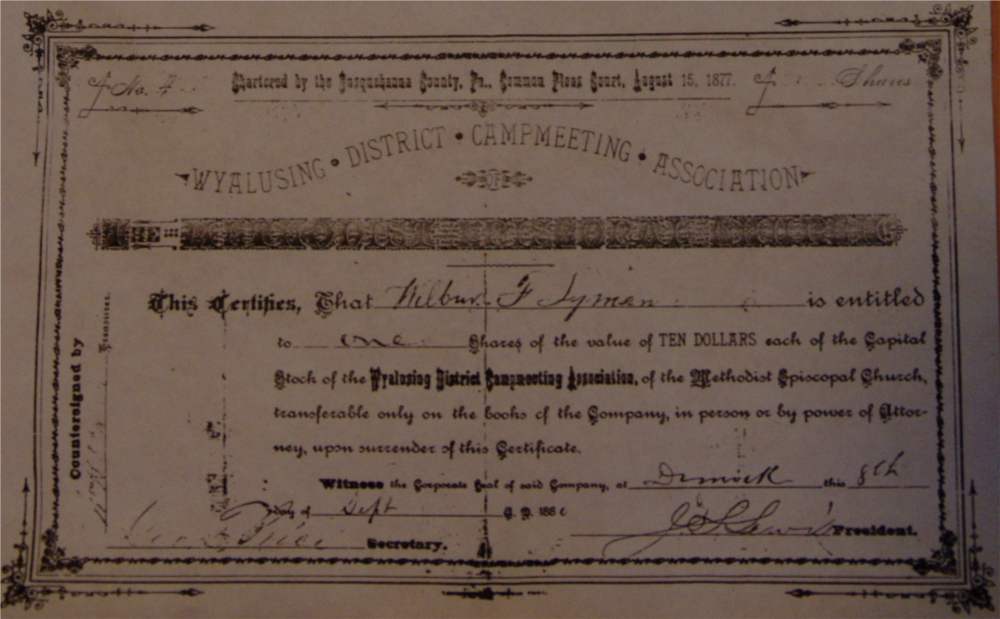 No. 4 Chartered by the Susquehanna County, Pa., Common Pleas Court, August 15, 1877. Shares
WYALUSING • DISTRICT • CAMPMEETING • ASSOCIATION
OF
THE METHODIST EPISCOPAL CHURCH
This Certifies, That Wilbur F Lyman is entitled
to one Shares of the value of TEN DOLLARS each of the Capital
Stock of the Wyalusing District Campmeeting Association, of the Methodist Episcopal Church,
transferable only on the books of the Company, in person or by power of Attor-
ney, upon surrender of this Certificate.
Witness the Corporate Seal of said Company, at Dimock this 8th
day of Sept A. D. 188
Secretary. Lewis President.
Countersigned by
Treasurer